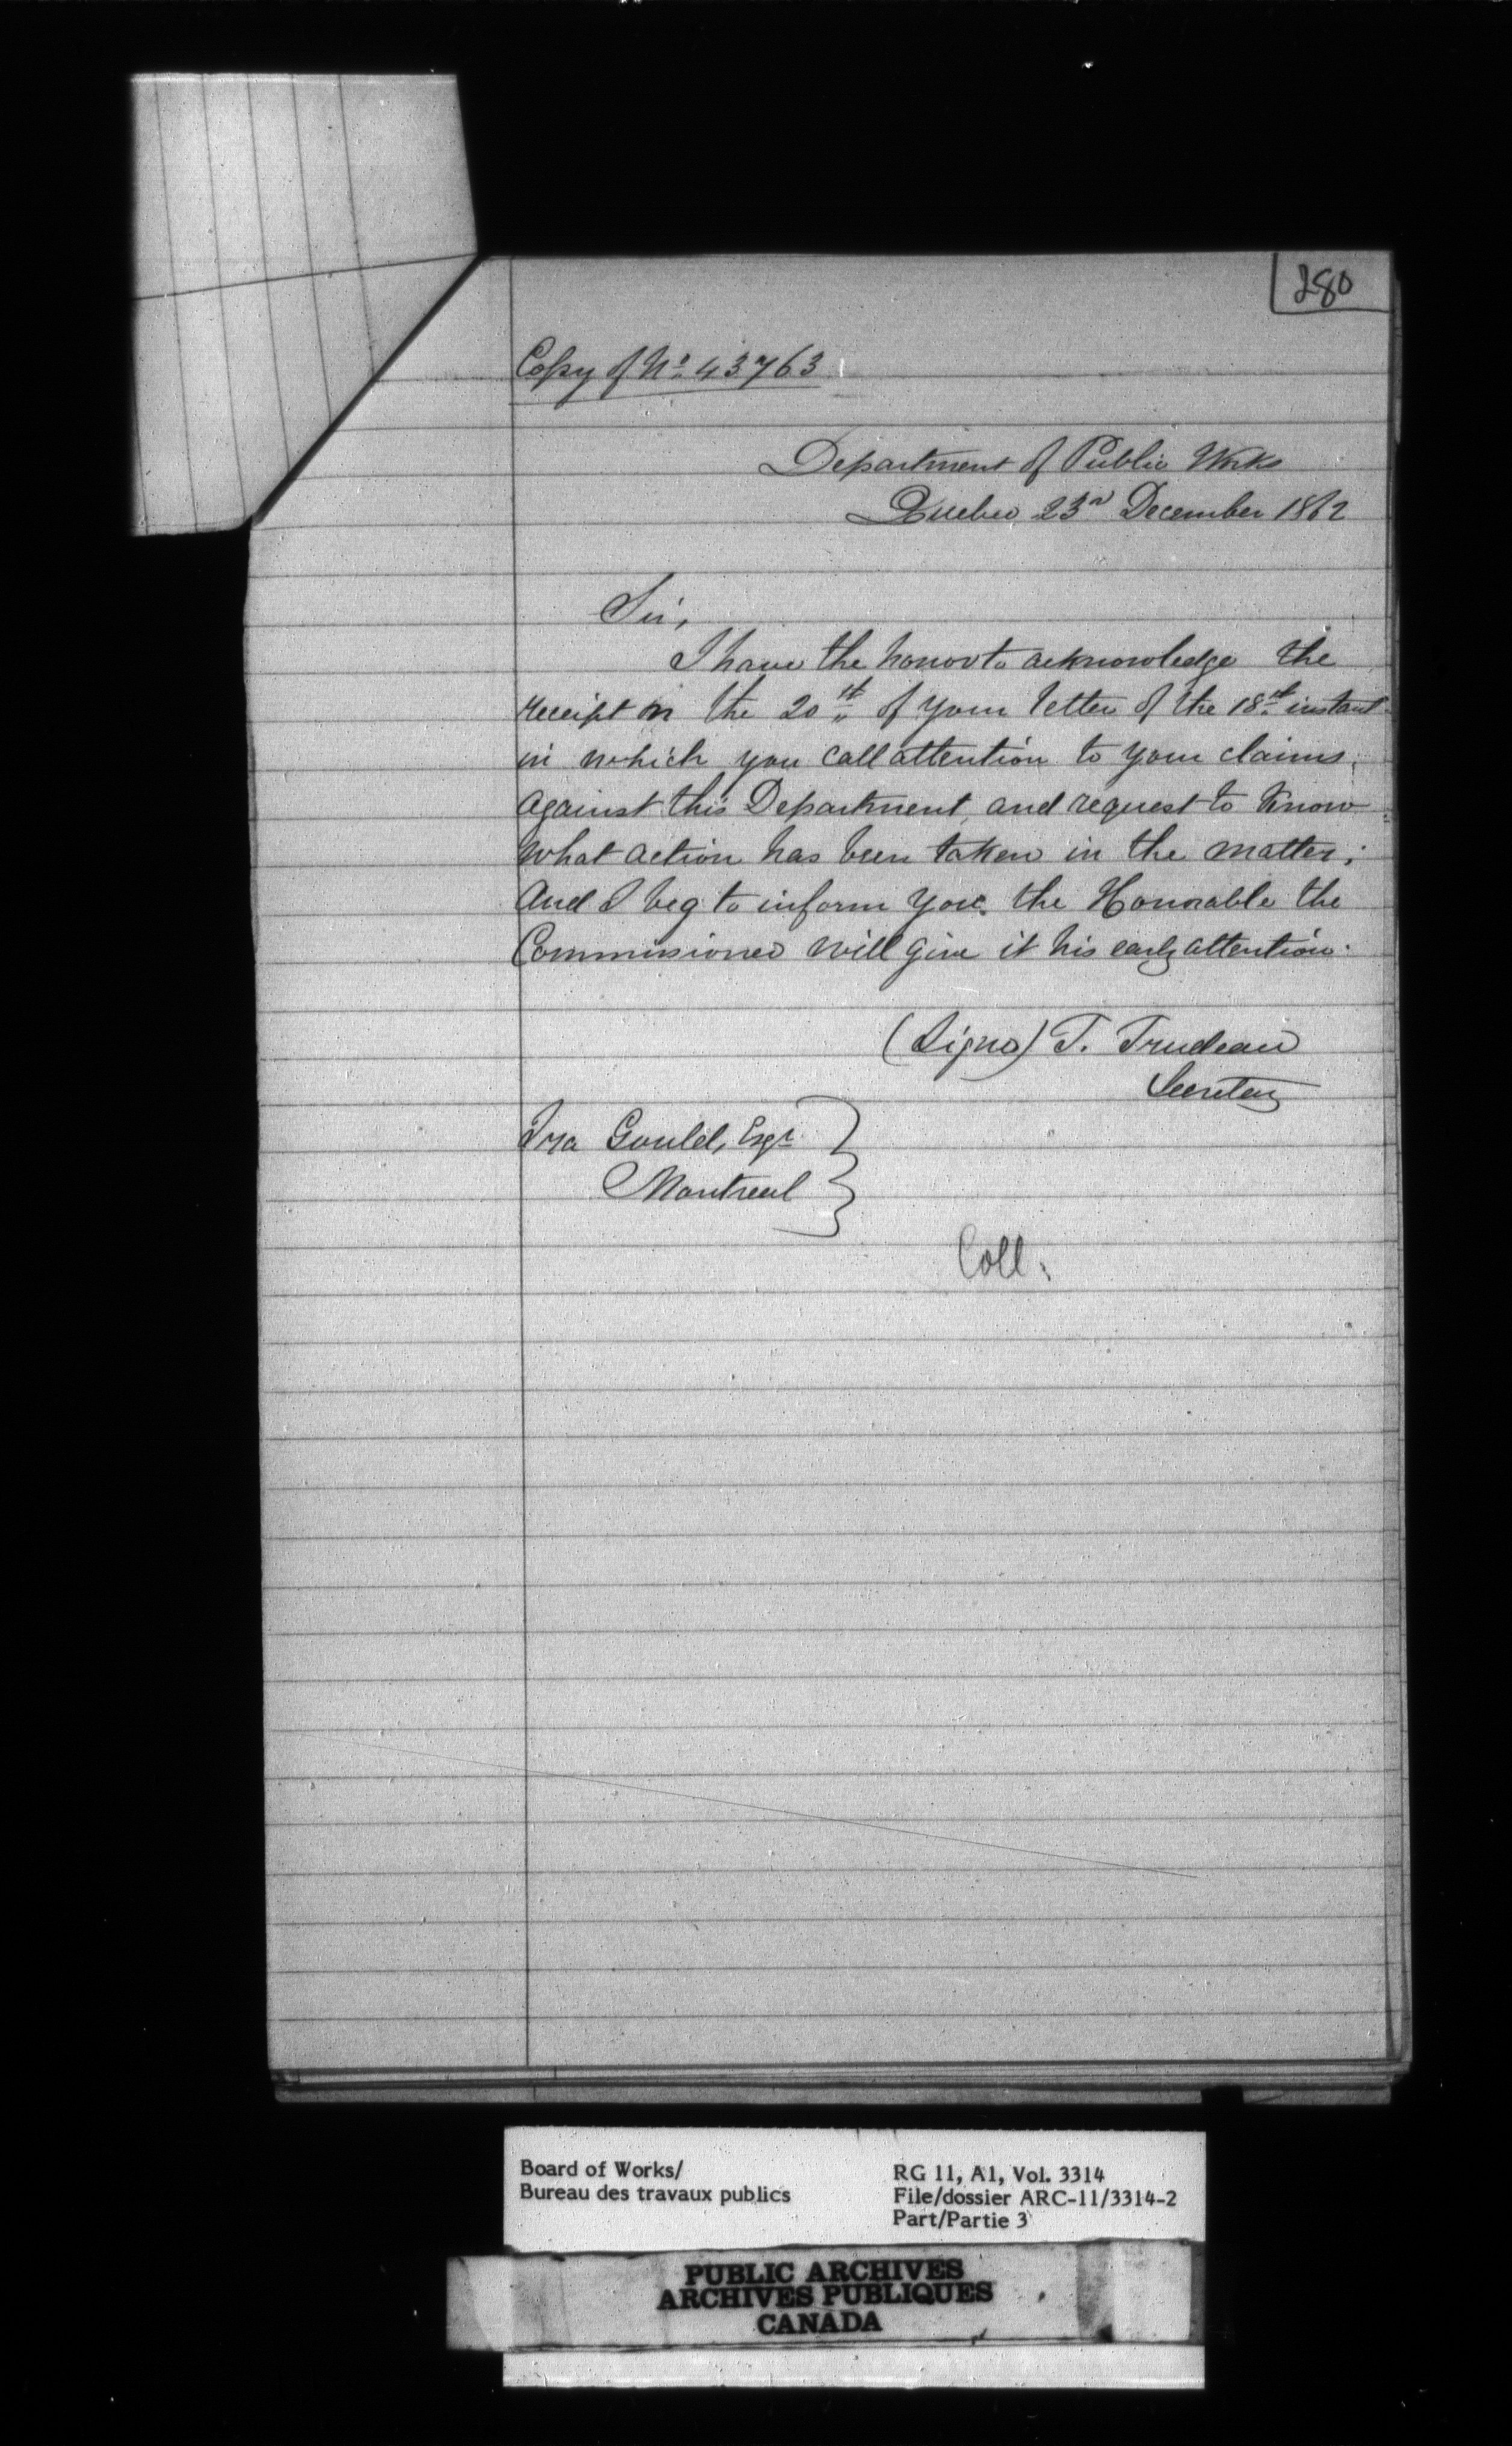 280
Copy of No 43763
Department of Public Works
Quebec 23rd December 1862
Sir,
I have the honor to acknowledge the
receipt on the 20th of your letter of the 18th instant
in which you call attention to your claims
against this Department, and request to know
what action has been taken in the matter;
and I beg to inform you the Honorable the
Commissioner will give it his early attention.
(Signed) T. Trudeau
Secretary
Ira Gould, Esqr
Montreal
Coll:
Board of Works/
Bureau des travaux publics
RG 11, A1, Vol. 3314
File/dossier ARC-11/3314-2
Part/Partie 3
PUBLIC ARCHIVES
ARCHIVES PUBLIQUES
CANADA